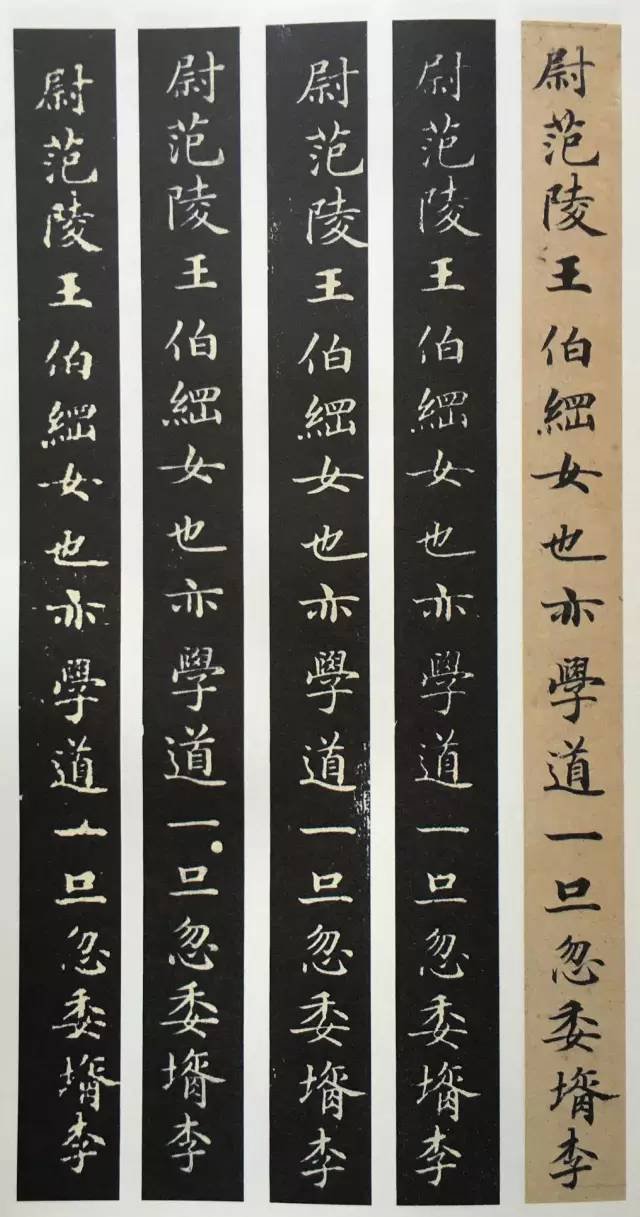 尉范陵王伯綱女也亦學道一旦忽委壻李
尉范陵王伯綱女也亦學道一旦忽委壻李
尉范陵王伯綱女也亦學道一旦忽委壻李
尉范陵王伯綱女也亦學道一旦忽委壻李
尉范陵王伯綱女也亦學道一旦忽委壻李